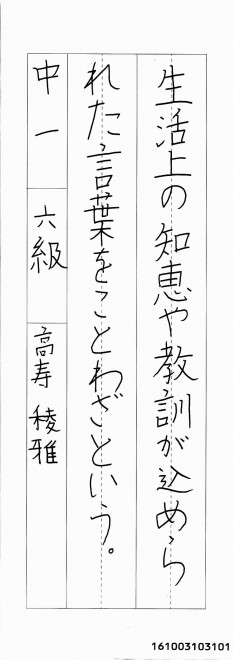 生活上の知恵や教訓が込めら
れた言葉をことわざという。
中一 六級 高寿 稜雅
161003103101